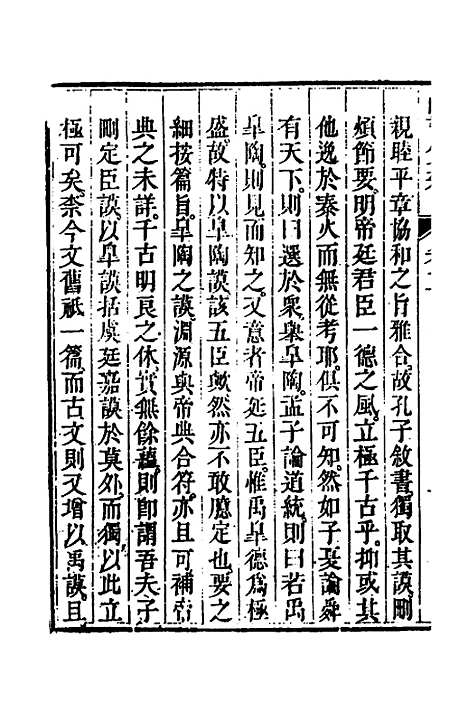 親睦平章協和之旨雅合故孔子敘書獨取其謨刪
煩節要明帝廷君臣一德之風立極千古乎抑或其
他逸於秦火而無從考耶俱不可知然如子夏論舜
有天下則曰選於衆舉皋陶孟子論道統則曰若禹
皋陶則見而知之又意者帝廷五臣惟禹皋德為極
盛故特以皋陶謨該五臣歟然亦不敢臆定也要之
細按篇旨皋陶之謨淵源與帝典合符亦且可補帝
典之未詳千古明良之休實無餘蘊則卽謂吾夫子
刪定臣謨以皋謨括虞廷嘉謨於莫外而獨以此立
極可矣柰今文舊祇一篇而古文則又增以禹謨且